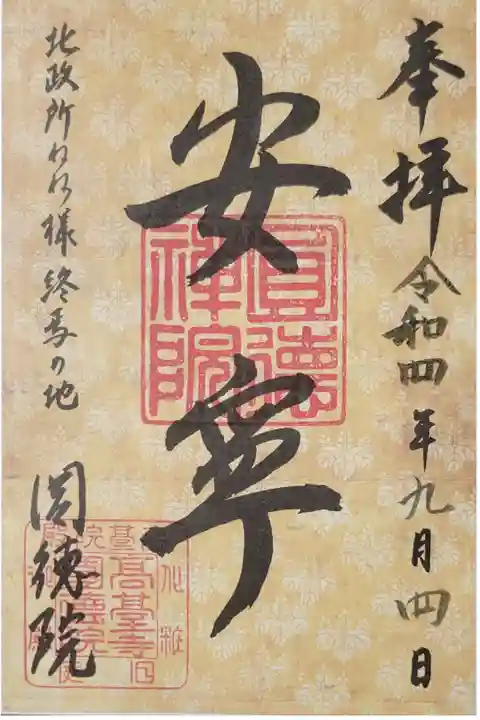 奉拝 令和四年九月四日
安寧
圓德禅院
北政所ねね様終焉の地
圓徳院
高臺寺